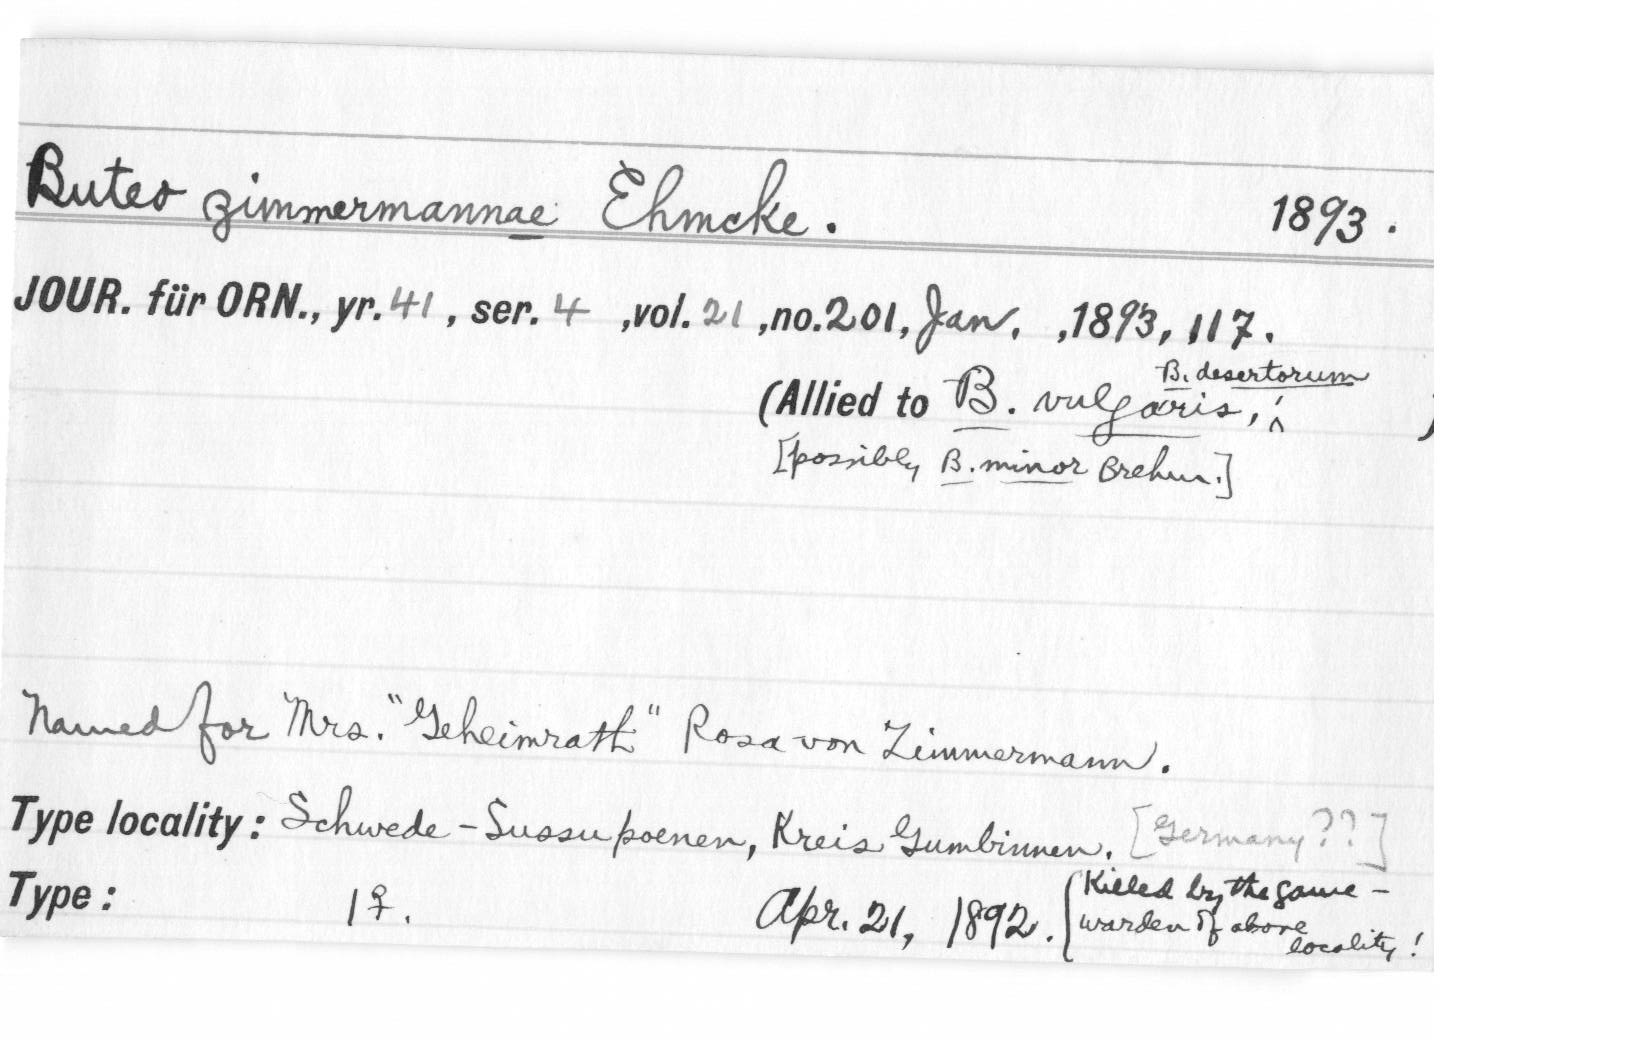 Buteo zimmermannae Ehmcke. 1893.
JOUR. für ORN., yr. 41, ser. 4, vol. 21, no. 201, Jan., 1893, 117.
B. desertorum
(Allied to B. vulgaris, ; )
[possibly B. minor Brehm.]
Named for Mrs. "Geheimrath" Rosa von Zimmermann.
Type locality: Schwede-Sussupoenen, Kreis Gumbinnen. [Germany??]
Type: 1♀. Apr. 21, 1892. (Killed by the game-
warden of above
locality!